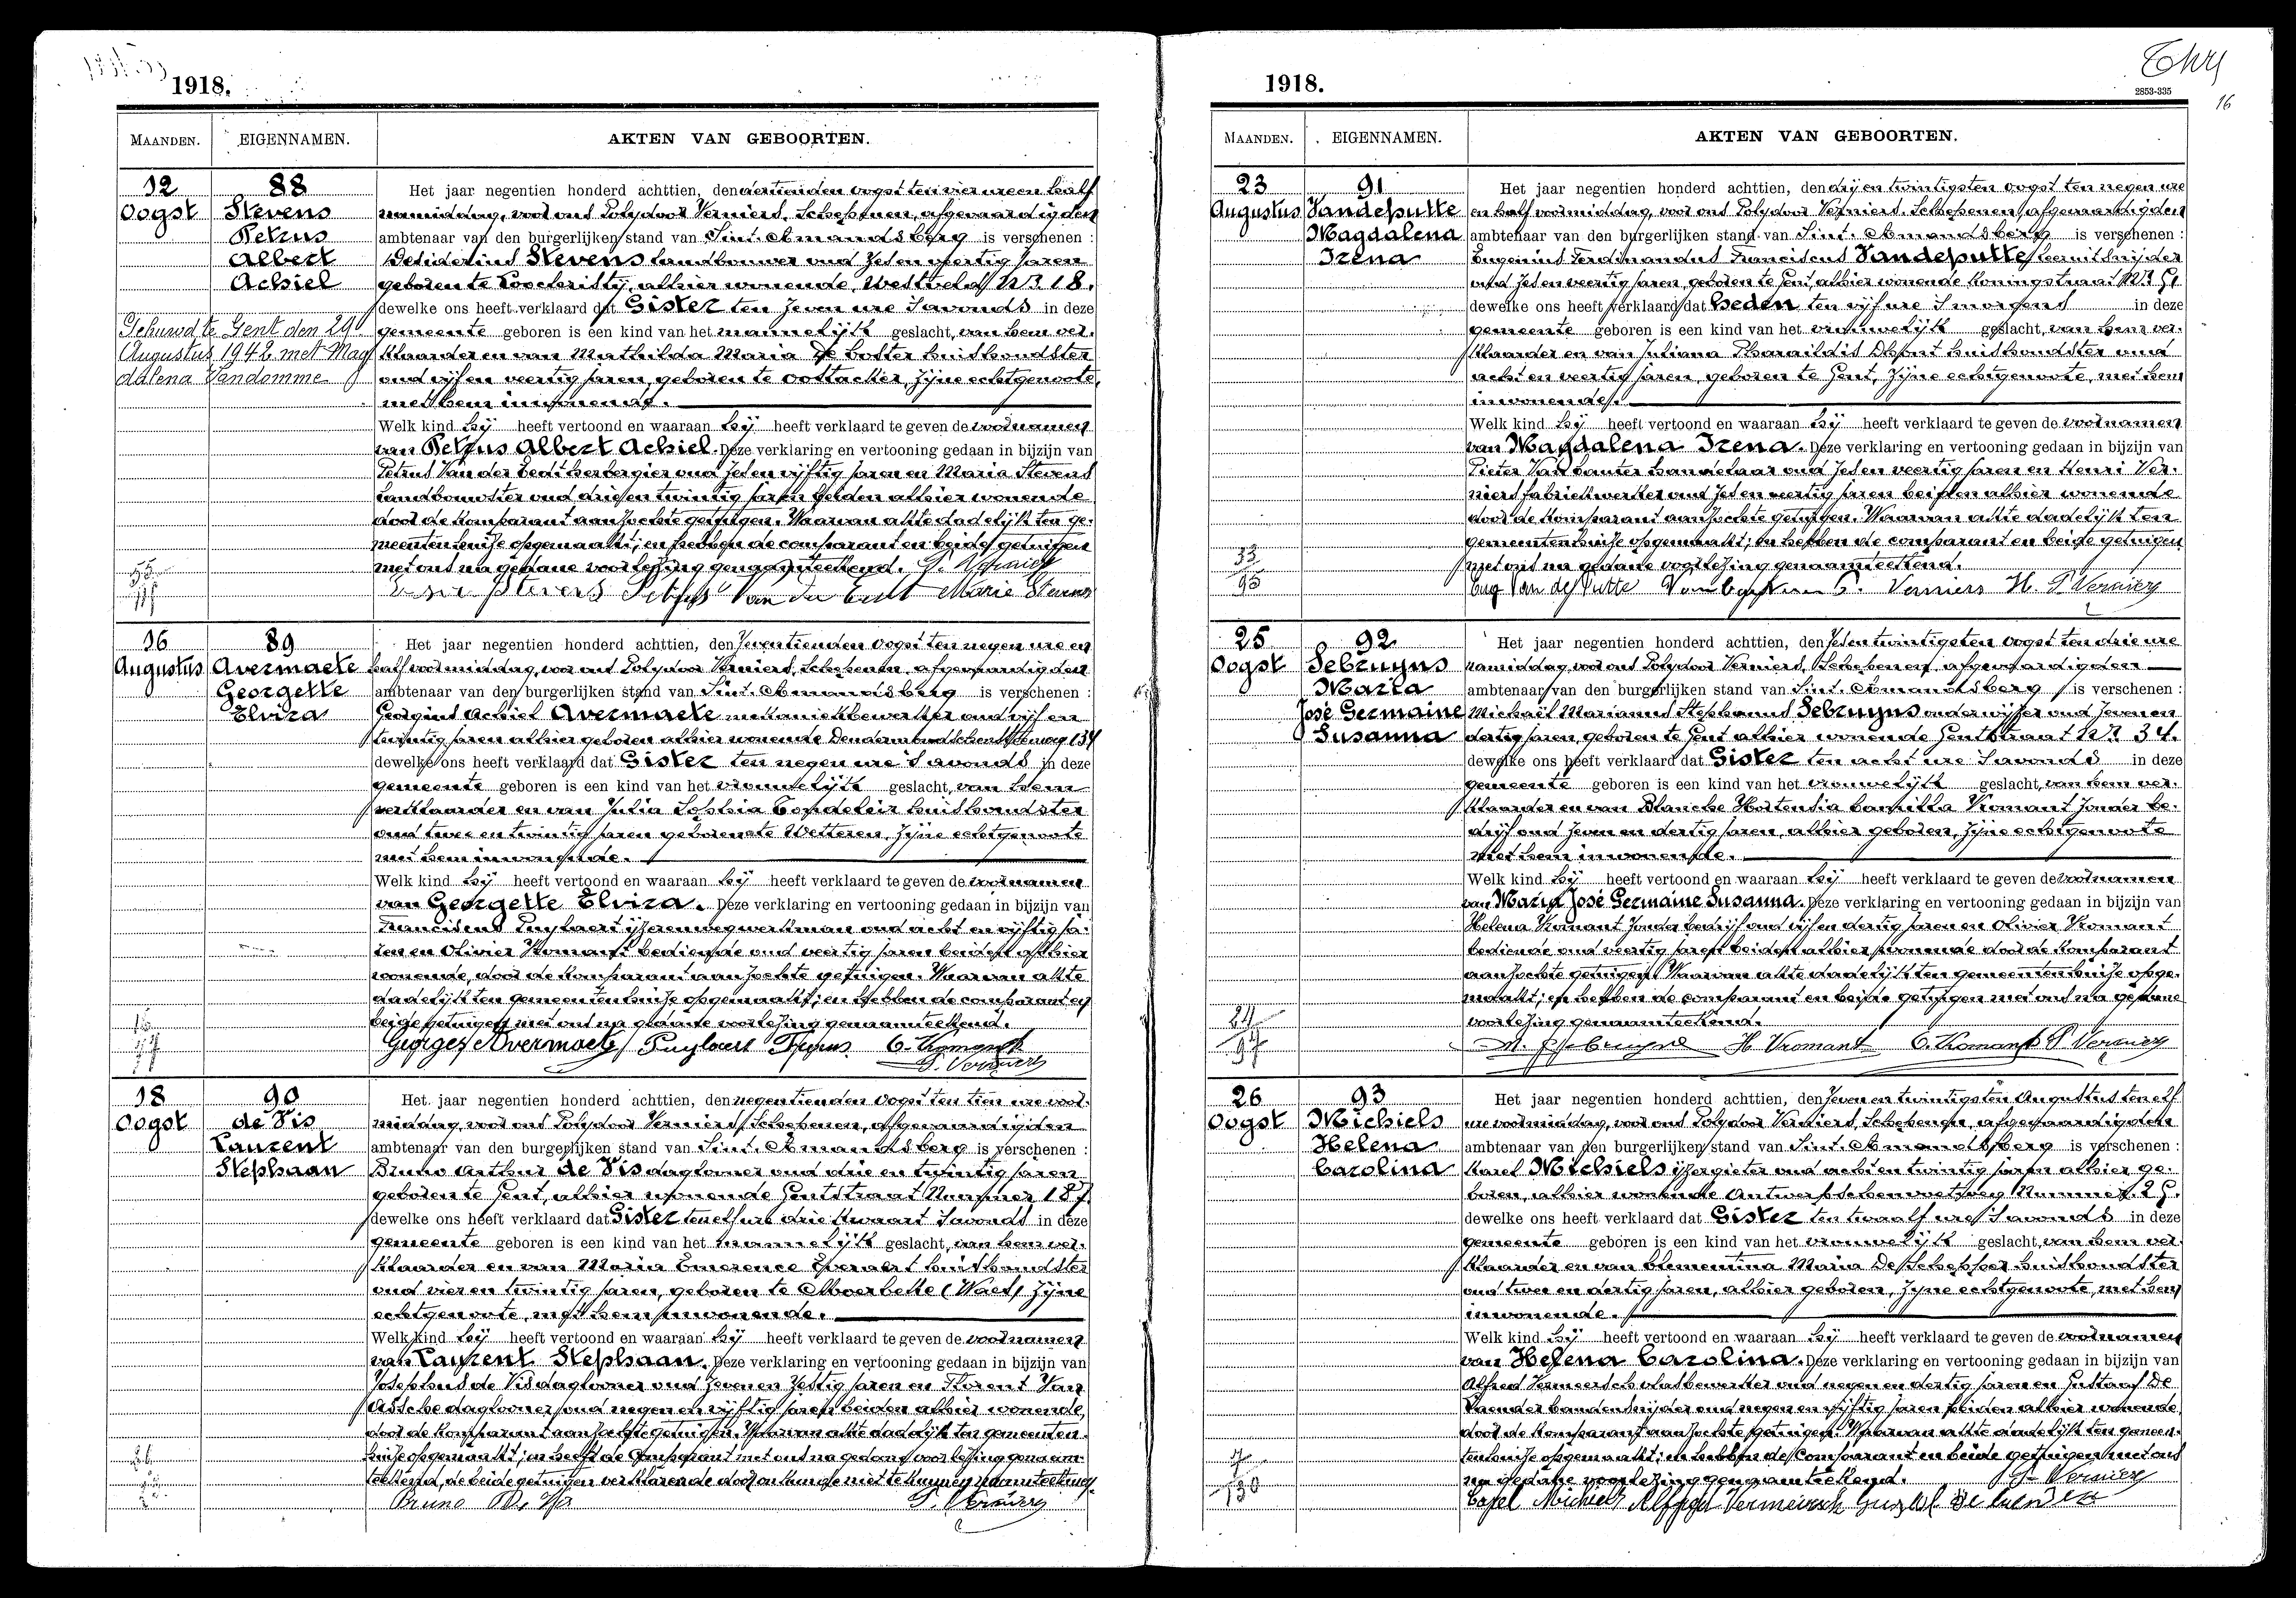 1918.
MAANDEN. EIGENNAMEN. AKTEN VAN GEBOORTEN.
12 88 Het jaar negentien honderd achttien, den dertienden oogst ten vier ure en half
Oogst Stevens namiddag, voor ons Polydoor Verniers, Schepenen, afgevaardigden
Petrus ambtenaar van den burgerlijken stand van Sint-Amandsberg is verschenen :
Albert Desiderius Stevens landbouwer oud zes en veertig jaren
Achiel geboren te Loochristy, alhier wonende, Westveld Nr 18.
dewelke ons heeft verklaard dat Gister ten zeven ure 's avonds in deze
Gehuwd te Gent den 29 gemeente geboren is een kind van het mannelijk geslacht, van hem ver-
Augustus 1942 met Mag klaarder en van Mathilda Maria De Coster huishoudster
dalena Vandamme oud vijf en veertig jaren, geboren te Oostacker, zijne echtgenoote,
met hem inwonende.
Welk kind hij heeft vertoond en waaraan hij heeft verklaard te geven de voornamen
van Petrus Albert Achiel. Deze verklaring en vertooning gedaan in bijzijn van
Petrus Van der herbergier oud zes en vijftig jaren en Maria Stevens
landbouwster oud drij en twintig jaren beiden alhier wonende
door de komparant aanzochte getuigen. Waarvan akte dadelijk ten ge-
meentenhuize opgemaakt; en hebben de comparant en beide getuigen
met ons na gedane voorlezing genaamteekend. P. Verniers
Stevens Van der Marie Stevens
16 89 Het jaar negentien honderd achttien, den zeventienden oogst ten negen ure en
Augustus Avermaete half voormiddag, voor ons Polydoor Verniers, Schepenen, afgevaardigden
Georgette ambtenaar van den burgerlijken stand van Sint-Amandsberg is verschenen :
Elvira Georgius Achiel Avermaete mekaniekbewerker oud vijf en
twintig jaren alhier geboren alhier wonende Dendermondschensteenweg 134
dewelke ons heeft verklaard dat Gister ten negen ure 's avonds in deze
gemeente geboren is een kind van het vrouwelijk geslacht, van hem
verklaarder en van Julia Sophia huishoudster
oud twee en twintig jaren geboren te Wetteren, zijne echtgenoote
met hem inwonende.
Welk kind hij heeft vertoond en waaraan hij heeft verklaard te geven de voornamen
van Georgette Elvira. Deze verklaring en vertooning gedaan in bijzijn van
Franciscus Puylaert ijzerenwegwerkman oud acht en vijftig ja-
ren en Olivier Vromant bediende oud veertig jaren beiden alhier
wonende, door de komparant aanzochte getuigen. Waarvan akte
dadelijk ten gemeentenhuize opgemaakt; en hebben de comparant en
beide getuigen met ons na gedane voorlezing genaamteekend.
Georges Avermaete Puylaert O. Vromant
P. Verniers
18 90 Het jaar negentien honderd achttien, den negentienden oogst ten tien ure voor-
Oogst de Vis middag, voor ons Polydoor Verniers, Schepenen, afgevaardigden
Laurent ambtenaar van den burgerlijken stand van Sint-Amandsberg is verschenen :
Stephaan Bruno Arthur de Vis daglooner oud drie en twintig jaren
geboren te Gent, alhier wonende Gentstraat Nummer 187
dewelke ons heeft verklaard dat Gister ten elf ure drie kwaart 's avonds in deze
gemeente geboren is een kind van het mannelijk geslacht, van hem ver-
klaarder en van Maria Emerence Everaert huishoudster
oud vier en twintig jaren, geboren te Moerbeke (Waes) zijne
echtgenoote, met hem inwonende.
Welk kind hij heeft vertoond en waaraan hij heeft verklaard te geven de voornamen
van Laurent Stephaan. Deze verklaring en vertooning gedaan in bijzijn van
Josephus de Vis daglooner oud zeven en zestig jaren en Florent Van
Assche daglooner oud negen en vijftig jaren beiden alhier wonende,
door de komparant aanzochte getuigen. Waarvan akte dadelijk ten gemeenten-
huize opgemaakt; en heeft de Comparant met ons na gedane voorlezing genaam-
teekend, de beide getuigen verklarende door onkunde niet te kunnen naamteekenen.
Bruno De Vis P. Verniers
1918.
2853-335
16
MAANDEN. EIGENNAMEN. AKTEN VAN GEBOORTEN.
23 91 Het jaar negentien honderd achttien, den drij en twintigsten oogst ten negen ure
Augustus Vandeputte en half voormiddag, voor ons Polydoor Verniers, Schepenen, afgevaardigden
Magdalena ambtenaar van den burgerlijken stand van Sint-Amandsberg is verschenen :
Irena Eugenius Ferdinandus Franciscus Vandeputte
oud zes en veertig jaren, geboren te Gent, alhier wonende Koningstraat Nr
dewelke ons heeft verklaard dat Heden ten vijf ure 's morgens in deze
gemeente geboren is een kind van het vrouwelijk geslacht, van hem ver-
klaarder en van Juliana Pharaildis Dhont huishoudster oud
acht en veertig jaren, geboren te Gent, zijne echtgenoote, met hem
inwonende.
Welk kind hij heeft vertoond en waaraan hij heeft verklaard te geven de voornamen
van Magdalena Irena. Deze verklaring en vertooning gedaan in bijzijn van
Pieter handelaar oud zes en veertig jaren en Henri Ver-
niers fabriekwerker oud zes en veertig jaren beiden alhier wonende
door de komparant aanzochte getuigen. Waarvan akte dadelijk ten
gemeentenhuize opgemaakt; en hebben de comparant en beide getuigen
met ons na gedane voorlezing genaamteekend.
Eug Van de Putte Verniers H. P. Verniers
25 92 Het jaar negentien honderd achttien, den zes en twintigsten oogst ten drie ure
Oogst Sebruyns namiddag, voor ons Polydoor Verniers, Schepenen, afgevaardigden
Maria ambtenaar van den burgerlijken stand van Sint-Amandsberg is verschenen :
José Germaine Michaël Marianus Stephanus Sebruyns onderwijzer oud zeven en
Susanna dertig jaren, geboren te Gent alhier wonende Gentstraat Nr 34.
dewelke ons heeft verklaard dat Gister ten acht ure 's avonds in deze
gemeente geboren is een kind van het vrouwelijk geslacht, van hem ver-
klaarder en van Blanche Hortensia Camilla Vromant zonder be-
drijf oud zeven en dertig jaren, alhier geboren, zijne echtgenoote
met hem inwonende.
Welk kind hij heeft vertoond en waaraan hij heeft verklaard te geven de voornamen
van Maria José Germaine Susanna. Deze verklaring en vertooning gedaan in bijzijn van
Helena Vromant zonder bedrijf oud vijf en dertig jaren en Olivier Vromant
bediende oud veertig jaren beiden alhier wonende door de komparant
aanzochte getuigen. Waarvan akte dadelijk ten gemeentenhuize opge-
maakt; en hebben de comparant en beide getuigen met ons na gedane
voorlezing genaamteekend.
H. Vromant O. Vromant P. Verniers
26 93 Het jaar negentien honderd achttien, den zeven en twintigsten Augustus ten elf
Oogst Michiels ure voormiddag, voor ons Polydoor Verniers, Schepenen, afgevaardigden
Helena ambtenaar van den burgerlijken stand van Sint-Amandsberg is verschenen :
Carolina Karel Michiels ijzergieter oud acht en twintig jaren alhier ge-
boren, alhier wonende Antwerpschenvoetweg Nummer
dewelke ons heeft verklaard dat Gister ten twaalf ure 's avonds in deze
gemeente geboren is een kind van het vrouwelijk geslacht, van hem ver-
klaarder en van Clementina Maria De Schepper huishoudster
oud twee en dertig jaren, alhier geboren, zijne echtgenoote, met hem
inwonende.
Welk kind hij heeft vertoond en waaraan hij heeft verklaard te geven de voornamen
van Helena Carolina. Deze verklaring en vertooning gedaan in bijzijn van
Alfred Vermeersch vlasbewerker oud negen en dertig jaren en Gustaaf De
oud negen en vijftig jaren beiden alhier wonende
door de komparant aanzochte getuigen. Waarvan akte dadelijk ten gemeen-
tenhuize opgemaakt; en hebben de Comparant en beide getuigen met ons
na gedane voorlezing genaamteekend. P. Verniers
Karel Michiels Alfred Vermeersch